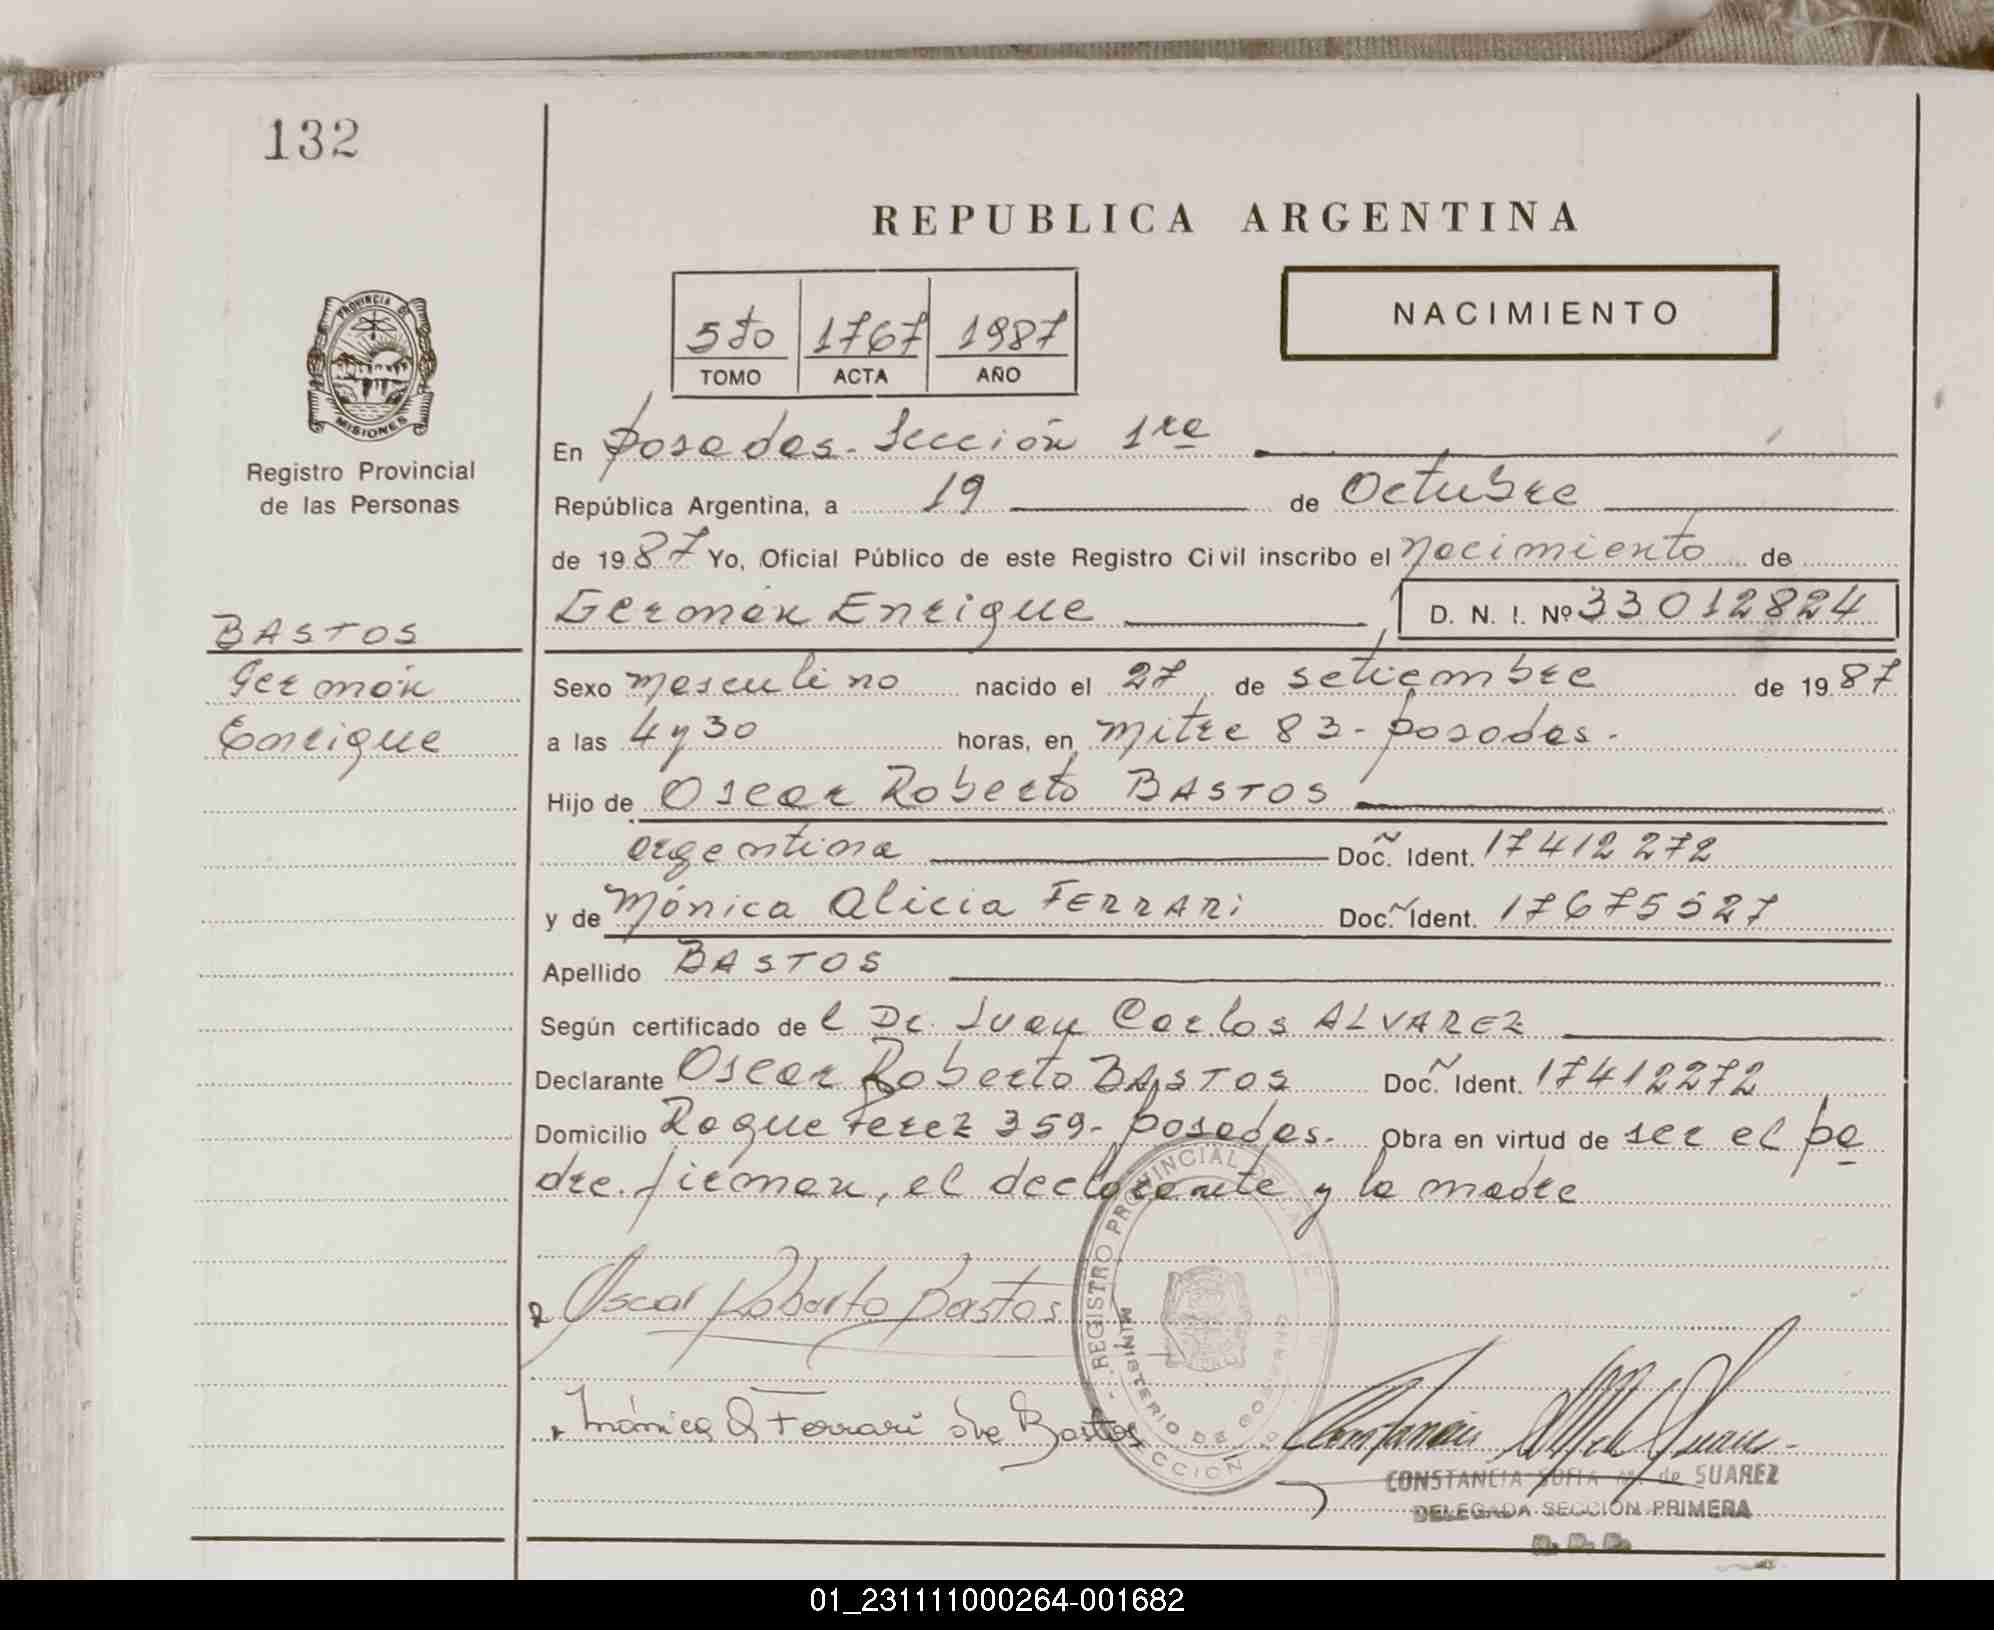 132
REPUBLICA ARGENTINA
5to 1767 1987
TOMO ACTA AÑO
NACIMIENTO
PROVINCIA DE
MISIONES
Registro Provincial
de las Personas
BASTOS
Germán
Enrique
En Posadas. Sección 1ra
República Argentina, a 19 de Octubre
de 1987 Yo, Oficial Público de este Registro Civil inscribo el nacimiento de
Germán Enrique D. N. I. Nº 33012824
Sexo masculino nacido el 27 de setiembre de 1987
a las 4 y 30 horas, en mitre 83 - posadas.
Hijo de Oscar Roberto BASTOS
argentina Doc. Ident. 17412272
y de Mónica Alicia FERRARI Doc. Ident. 17675527
Apellido BASTOS
Según certificado de l Dr. Juan Carlos ALVAREZ
Declarante Oscar Roberto BASTOS Doc. Ident. 17412272
Domicilio Roque Perez 359- posadas. Obra en virtud de ser el pa
dre. firman, el declarante y la madre
Oscar Roberto Bastos
Mónica A Ferrari de Bastos
REGISTRO PROVINCIAL DE LAS
MINISTERIO DE GOBIERNO
SECCION
CONSTANCIA SOFIA M. de SUAREZ
DELEGADA SECCION PRIMERA
R. P. P.
01_231111000264-001682